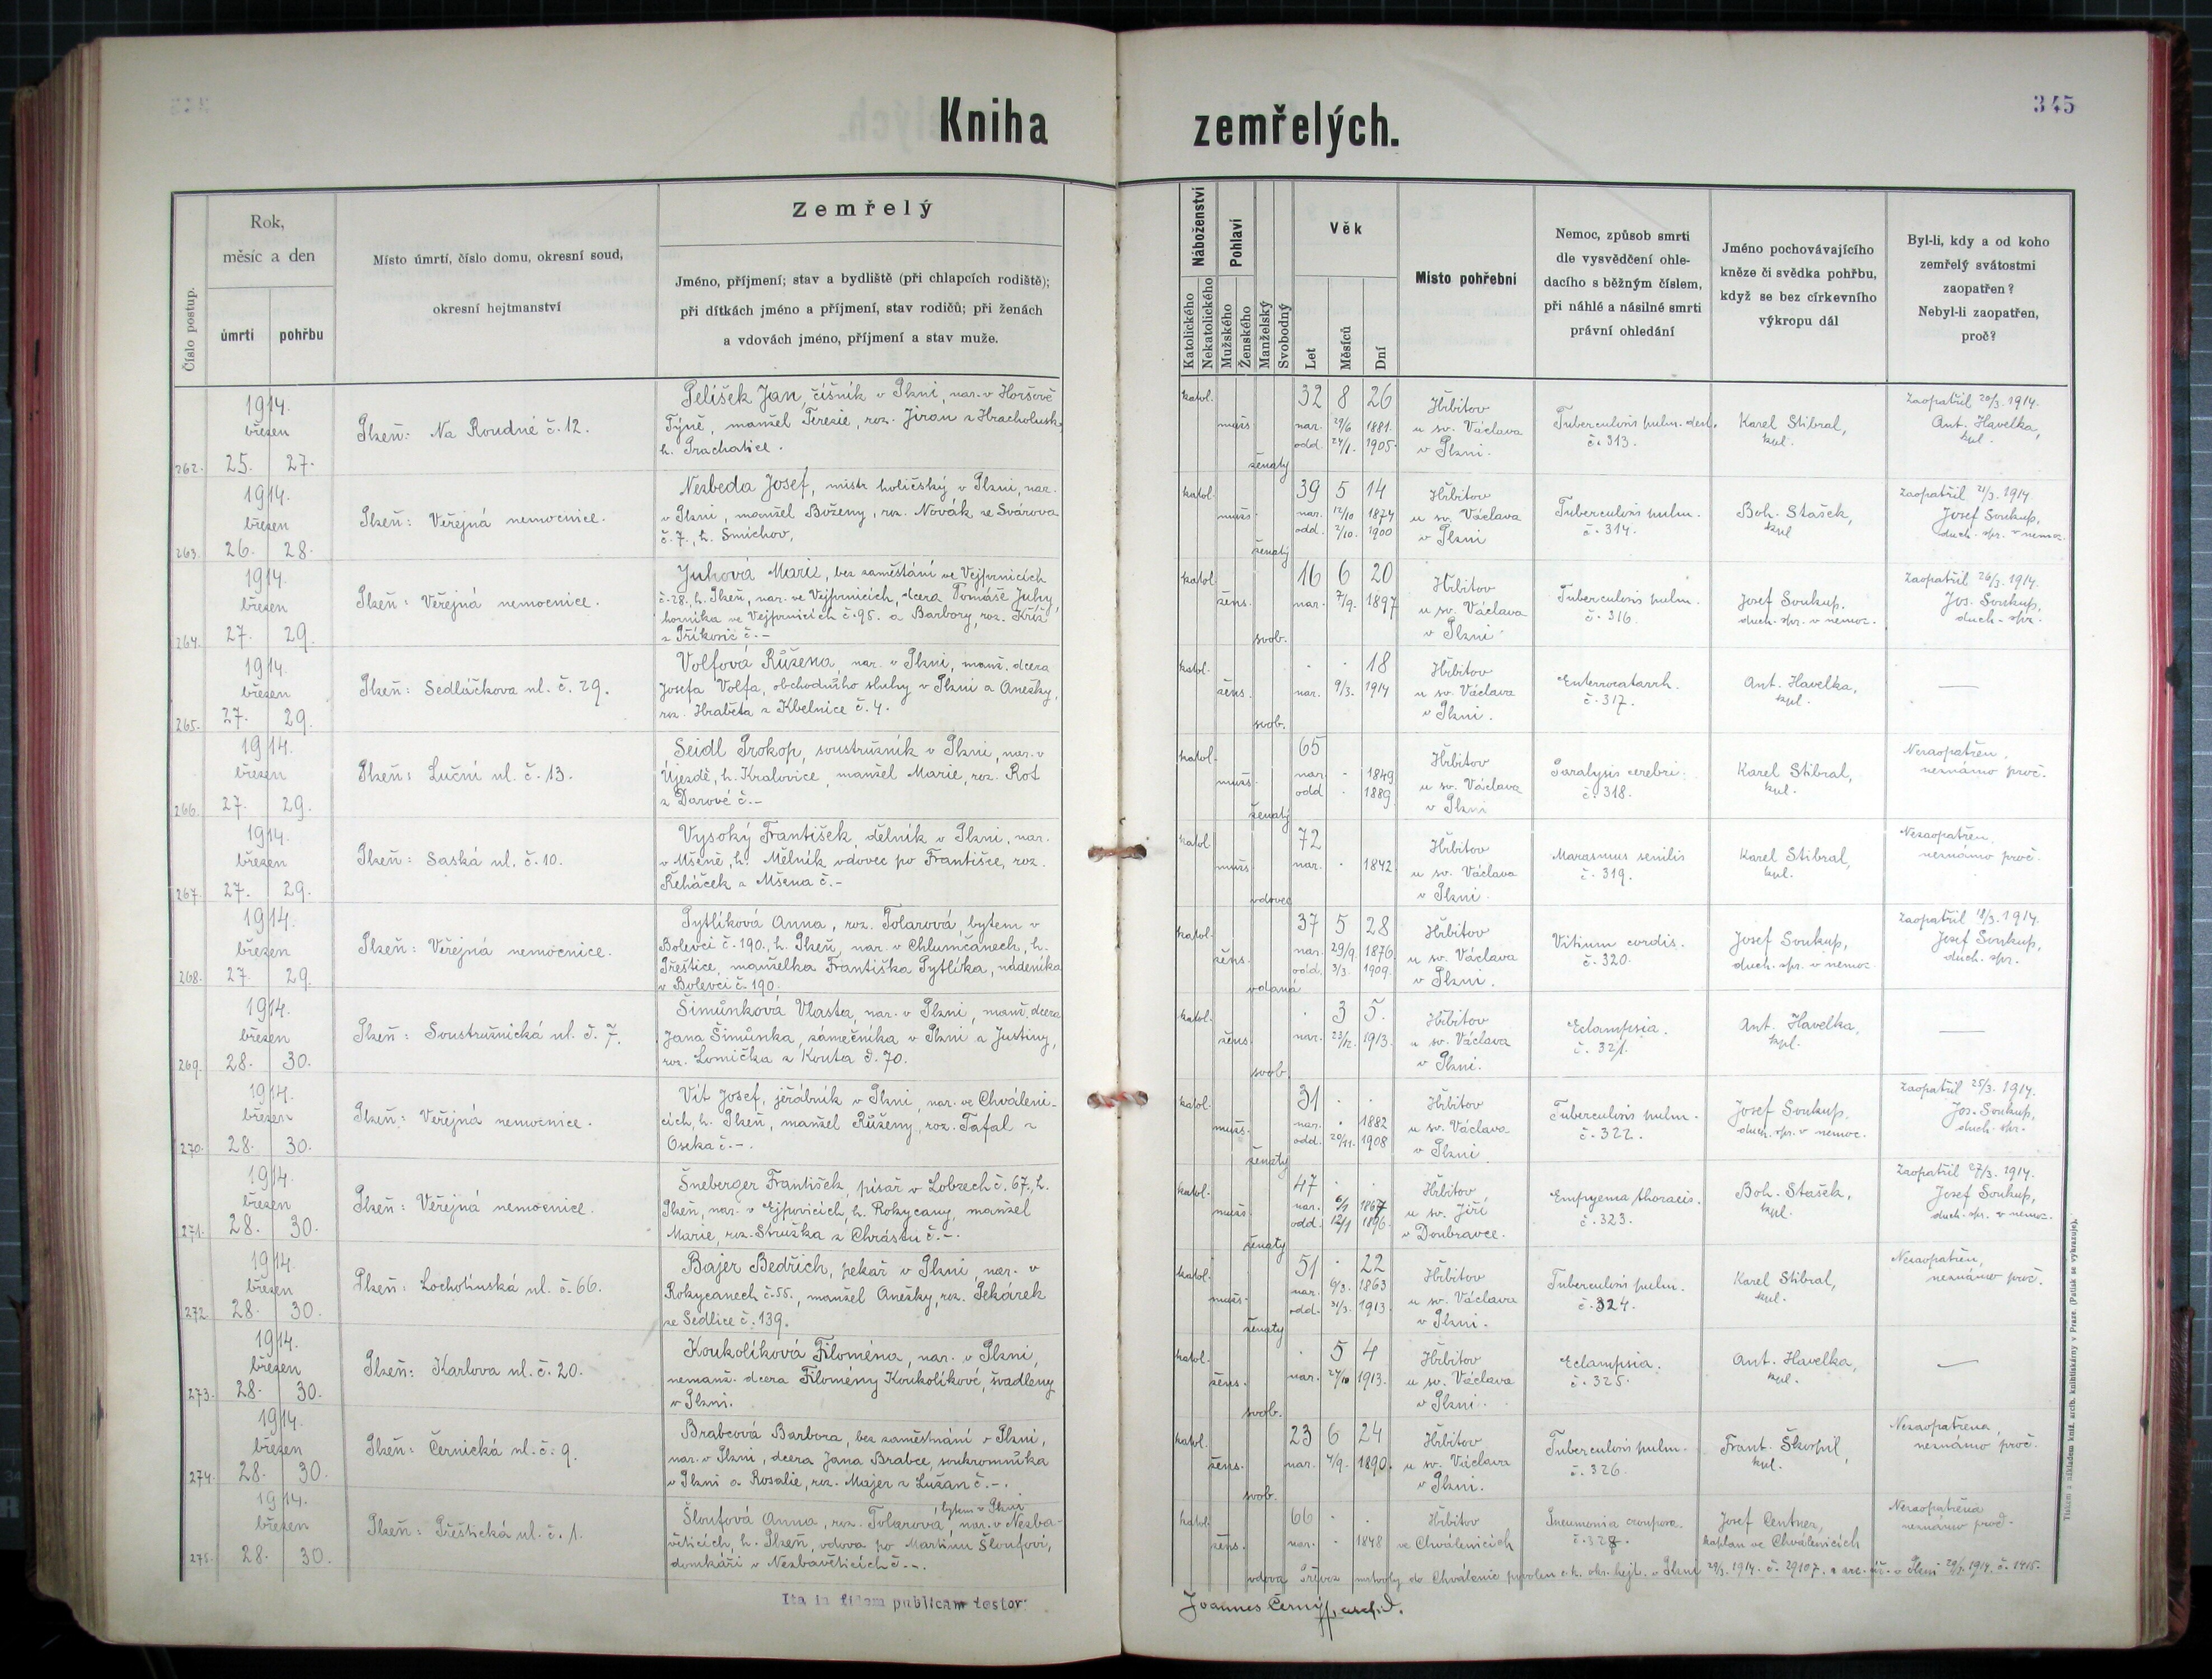 345
Kniha zemřelých.
Číslo postup.
Rok,
měsíc a den
úmrtí
pohřbu
Místo úmrtí, číslo domu, okresní soud,
okresní hejtmanství
Zemřelý
Jméno, příjmení; stav a bydliště (při chlapcích rodiště);
při dítkách jméno a příjmení, stav rodičů; při ženách
a vdovách jméno, příjmení a stav muže.
Náboženství
Katolického
Nekatolického
Pohlaví
Mužského
Ženského
Manželský
Svobodný
Věk
Let
Měsíců
Dní
Místo pohřební
Nemoc, způsob smrti
dle vysvědčení ohle-
dacího s běžným číslem,
při náhlé a násilné smrti
právní ohledání
Jméno pochovávajícího
kněze či svědka pohřbu,
když se bez církevního
výkropu dál
Byl-li, kdy a od koho
zemřelý svátostmi
zaopatřen?
Nebyl-li zaopatřen,
proč?
262.
1914.
březen
25. 27.
Plzeň: Na Roudné č. 12.
Pelíšek Jan, číšník v Plzni, nar. v Horšově
Týně, manžel Terezie, roz. Jiran z Hracholusk,
h. Prachatice.
katol. muž. ženatý
32 8 26
nar. 29/6 1881.
odd. 24/1. 1905.
Hřbitov
u sv. Václava
v Plzni.
Tuberculosis pulm. dext.
č. 313.
Karel Stibral,
kpl.
Zaopatřil 20/3. 1914.
Ant. Havelka,
kpl.
263.
1914.
březen
26. 28.
Plzeň: Veřejná nemocnice.
Nezbeda Josef, mistr holičský v Plzni, nar.
v Plzni, manžel Boženy, roz. Novák ze Svárova
č. 7., h. Smíchov.
katol. muž. ženatý
39 5 14
nar. 12/10 1874
odd. 2/10. 1900
Hřbitov
u sv. Václava
v Plzni
Tuberculosis pulm.
č. 314.
Boh. Stašek,
kpl
Zaopatřil 21/3. 1914.
Josef Soukup,
duch. spr. v nemoc.
264.
1914.
březen
27. 29.
Plzeň: Veřejná nemocnice.
Juhová Marie, bez zaměstání ve Vejprnicích
č. 28., h. Plzeň, nar. ve Vejprnicích, dcera Tomáše Juhy,
horníka ve Vejprnicích č. 95. a Barbory, roz. Kříž
z Příkosic č. -
katol. žens. svob.
16 6 20
nar. 7/9. 1897
Hřbitov
u sv. Václava
v Plzni
Tuberculosis pulm.
č. 316.
Josef Soukup,
duch. spr. v nemoc.
Zaopatřil 26/3. 1914.
Jos. Soukup,
duch. spr.
265.
1914.
březen
27. 29.
Plzeň: Sedláčkova ul. č. 29.
Volfová Růžena, nar. v Plzni, manž. dcera
Josefa Volfa, obchodního sluhy v Plzni a Anežky,
roz. Hraběta z Kbelnice č. 4.
katol. žens. svob.
. . 18
nar. 9/3. 1914
Hřbitov
u sv. Václava
v Plzni.
Enterocatarrh.
č. 317.
Ant. Havelka,
kpl.
—
266.
1914.
březen
27. 29.
Plzeň: Luční ul. č. 13.
Seidl Prokop, soustružník v Plzni, nar. v
Újezdě, h. Kralovice, manžel Marie, roz. Rot
z Darové č. -
katol. muž. ženatý
65
nar. - 1849
odd. . 1889
Hřbitov
u sv. Václava
v Plzni
Paralysis cerebri.
č. 318.
Karel Stibral,
kpl.
Nezaopatřen,
neznámo proč.
267.
1914.
březen
27. 29.
Plzeň: Saská ul. č. 10.
Vysoký František, dělník v Plzni, nar.
v Mšeně, h. Mělník, vdovec po Františce, roz.
Řeháček z Mšena č. -
katol muž. vdovec
72
nar. . 1842
Hřbitov
u sv. Václava
v Plzni.
Marasmus senilis
č. 319.
Karel Stibral,
kpl.
Nezaopatřen,
neznámo proč.
268.
1914.
březen
27. 29.
Plzeň: Veřejná nemocnice.
Pytlíková Anna, roz. Tolarová, bytem v
Bolevci č. 190., h. Plzeň, nar. v Chlumčanech, h.
Přeštice, manželka Františka Pytlíka, nádeníka
v Bolevci č. 190.
katol. žens. vdaná
37 5 28
nar. 29/9. 1876.
odd. 3/3. 1909.
Hřbitov
u sv. Václava
v Plzni.
Vitium cordis.
č. 320.
Josef Soukup,
duch. spr. v nemoc.
Zaopatřil 18/3. 1914.
Josef Soukup,
duch. spr.
269.
1914.
březen
28. 30.
Plzeň: Soustružnická ul. č. 7.
Šimůnková Vlasta, nar. v Plzni, manž. dcera
Jana Šimůnka, zámečníka v Plzni a Justiny,
roz. Lomička z Kouta č. 70.
katol. žens. svob.
. 3 5.
nar. 23/12. 1913.
Hřbitov
u sv. Václava
v Plzni.
Eclampsia.
č. 321.
Ant. Havelka,
kpl.
—
270.
1914.
březen
28. 30.
Plzeň: Veřejná nemocnice.
Vít Josef, jeřábník v Plzni, nar. ve Chváleni-
cích, h. Plzeň, manžel Růženy, roz. Tafal z
Oseka č. -.
katol. muž. ženatý
31 . .
nar. . 1882
odd. 20/11. 1908
Hřbitov
u sv. Václava
v Plzni
Tuberculosis pulm.
č. 322.
Josef Soukup.
duch. spr. v nemoc.
Zaopatřil 25/3. 1914.
Jos. Soukup,
duch. spr.
271.
1914.
březen
28. 30.
Plzeň: Veřejná nemocnice.
Šneberger František, písař v Lobzech č. 67., h.
Plzeň, nar. v Ejpovicích, h. Rokycany, manžel
Marie, roz. Stružka z Chrástu č. -.
katol. muž. ženatý
47 . .
nar. 6/1 1867
odd. 12/1 1896.
Hřbitov
u sv. Jiří
v Doubravce.
Empyema thoracis.
č. 323.
Boh. Stašek,
kpl.
Zaopatřil 27/3. 1914.
Josef Soukup,
duch. spr. v nemoc.
272.
1914.
březen
28. 30.
Plzeň: Lochotínská ul. č. 66.
Bajer Bedřich, pekař v Plzni, nar. v
Rokycanech č. 55., manžel Anežky, roz. Pekárek
ze Sedlice č. 139.
katol. muž. ženatý
51 . 22
nar. 6/3. 1863
odd. 31/3. 1913.
Hřbitov
u sv. Václava
v Plzni.
Tuberculosis pulm.
č. 324.
Karel Stibral,
kpl.
Nezaopatřen,
neznámo proč.
273.
1914.
březen
28. 30.
Plzeň: Karlova ul. č. 20.
Koukolíková Filoména, nar. v Plzni,
nemanž. dcera Filomény Koukolíkové, švadleny
v Plzni.
katol. žens. svob.
. 5 4
nar. 24/10 1913.
Hřbitov
u sv. Václava
v Plzni.
Eclampsia.
č. 325.
Ant. Havelka,
kpl.
—
274.
1914.
březen
28. 30.
Plzeň: Černická ul. č. 9.
Brabcová Barbora, bez zaměstnání v Plzni,
nar. v Plzni, dcera Jana Brabce, soukromníka
v Plzni a Rosalie, roz. Majer z Lužan č. -.
katol. žens. svob.
23 6 24
nar. 4/9. 1890.
Hřbitov
u sv. Václava
v Plzni.
Tuberculosis pulm.
č. 326.
Frant. Škorpil,
kpl.
Nezaopatřena,
neznámo proč.
275.
1914.
březen
28. 30.
Plzeň: Přeštická ul. č. 1.
, bytem v Plzni
Šloufová Anna, roz. Tolarová, nar. v Nezba-
věticích, h. Plzeň, vdova po Martinu Šloufovi,
domkáři v Nezbavěticích č. -.
katol. žens. vdova
66 . .
nar. . 1848
Hřbitov
ve Chválenicích
Pneumonia crouposa.
č. 328.
Josef Centner,
kaplan ve Chválenicích
Nezaopatřena
neznámo proč.
Převoz mrtvoly do Chválenic povolen c. k. okr. hejt. v Plzni 29/3. 1914. č. 29107. a arc. úř. v Plzni 29/3. 1914. č. 1415.
Ita in fidem publicam testor:
Joannes Černý, archid.
Tiskem a nákladem kníž. arcib. knihtiskárny v Praze. (Padělek se vykazuje).